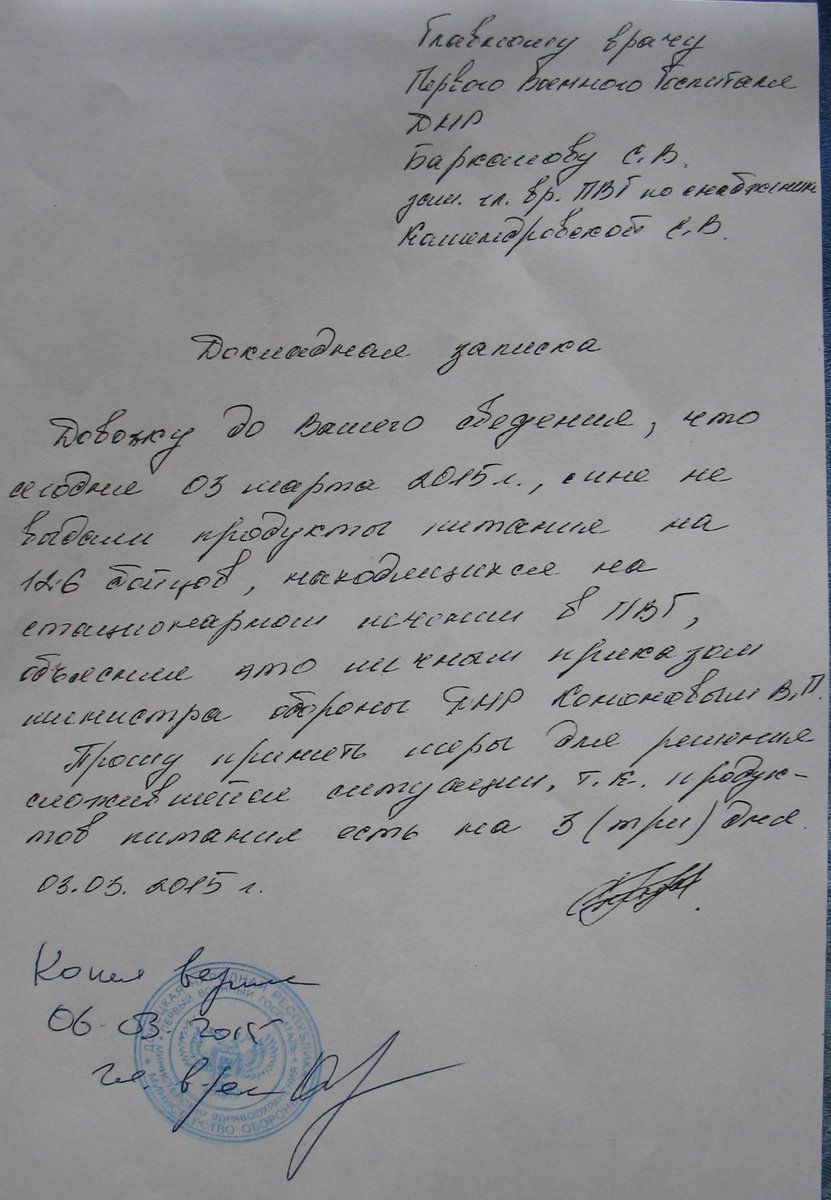 Главному врачу
Первого Военного Госпиталя
ДНР
Баркалову С.В.
зам. гл. вр. ПВГ по снабжению
С.В.
Докладная записка
Довожу до Вашего сведения, что
сегодня 03 марта 2015г., мне не
выдали продукты питания на
126 бойцов, находящихся на
стационарном лечении в ПВГ,
объяснив это личным приказом
министра обороны ДНР Кононовым В.П.
Прошу принять меры для решения
сложившейся ситуации, т.к. продук-
тов питания есть на 3 (три) дня.
03.03.2015 г.
Копия верна
06.03.2015
гл. врач
ДОНЕЦКАЯ НАРОДНАЯ РЕСПУБЛИКА
ПЕРВЫЙ ВОЕННЫЙ ГОСПИТАЛЬ
МИНИСТЕРСТВО ЗДРАВООХРАНЕНИЯ
МИНИСТЕРСТВО ОБОРОНЫ